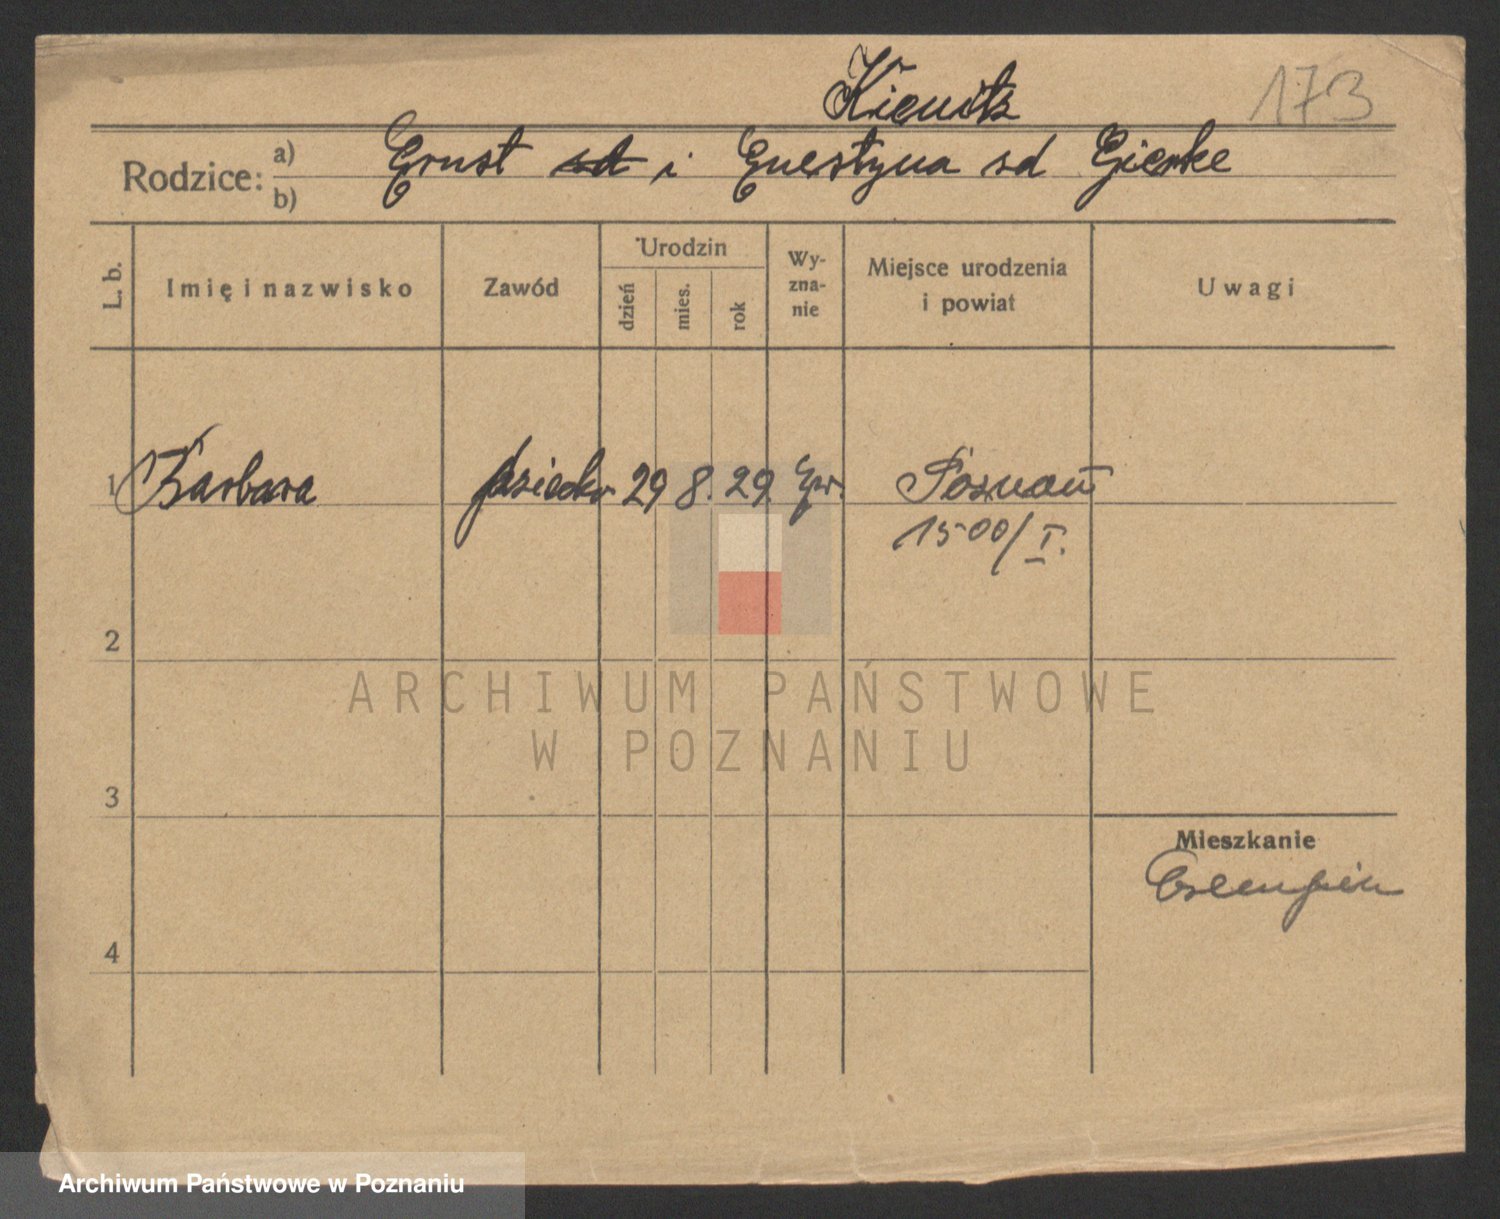 Kienitz 173
Rodzice: a) Ernst i Ernestyna zd Gierke
b)
L. b. Imię i nazwisko Zawód Urodzin dzień mies. rok Wyznanie Miejsce urodzenia i powiat Uwagi
1 Barbara dziecko 29 8. 29. Ew. Poznań
1500/I.
2
3
Mieszkanie
4
ARCHIWUM PAŃSTWOWE
W POZNANIU
Archiwum Państwowe w Poznaniu